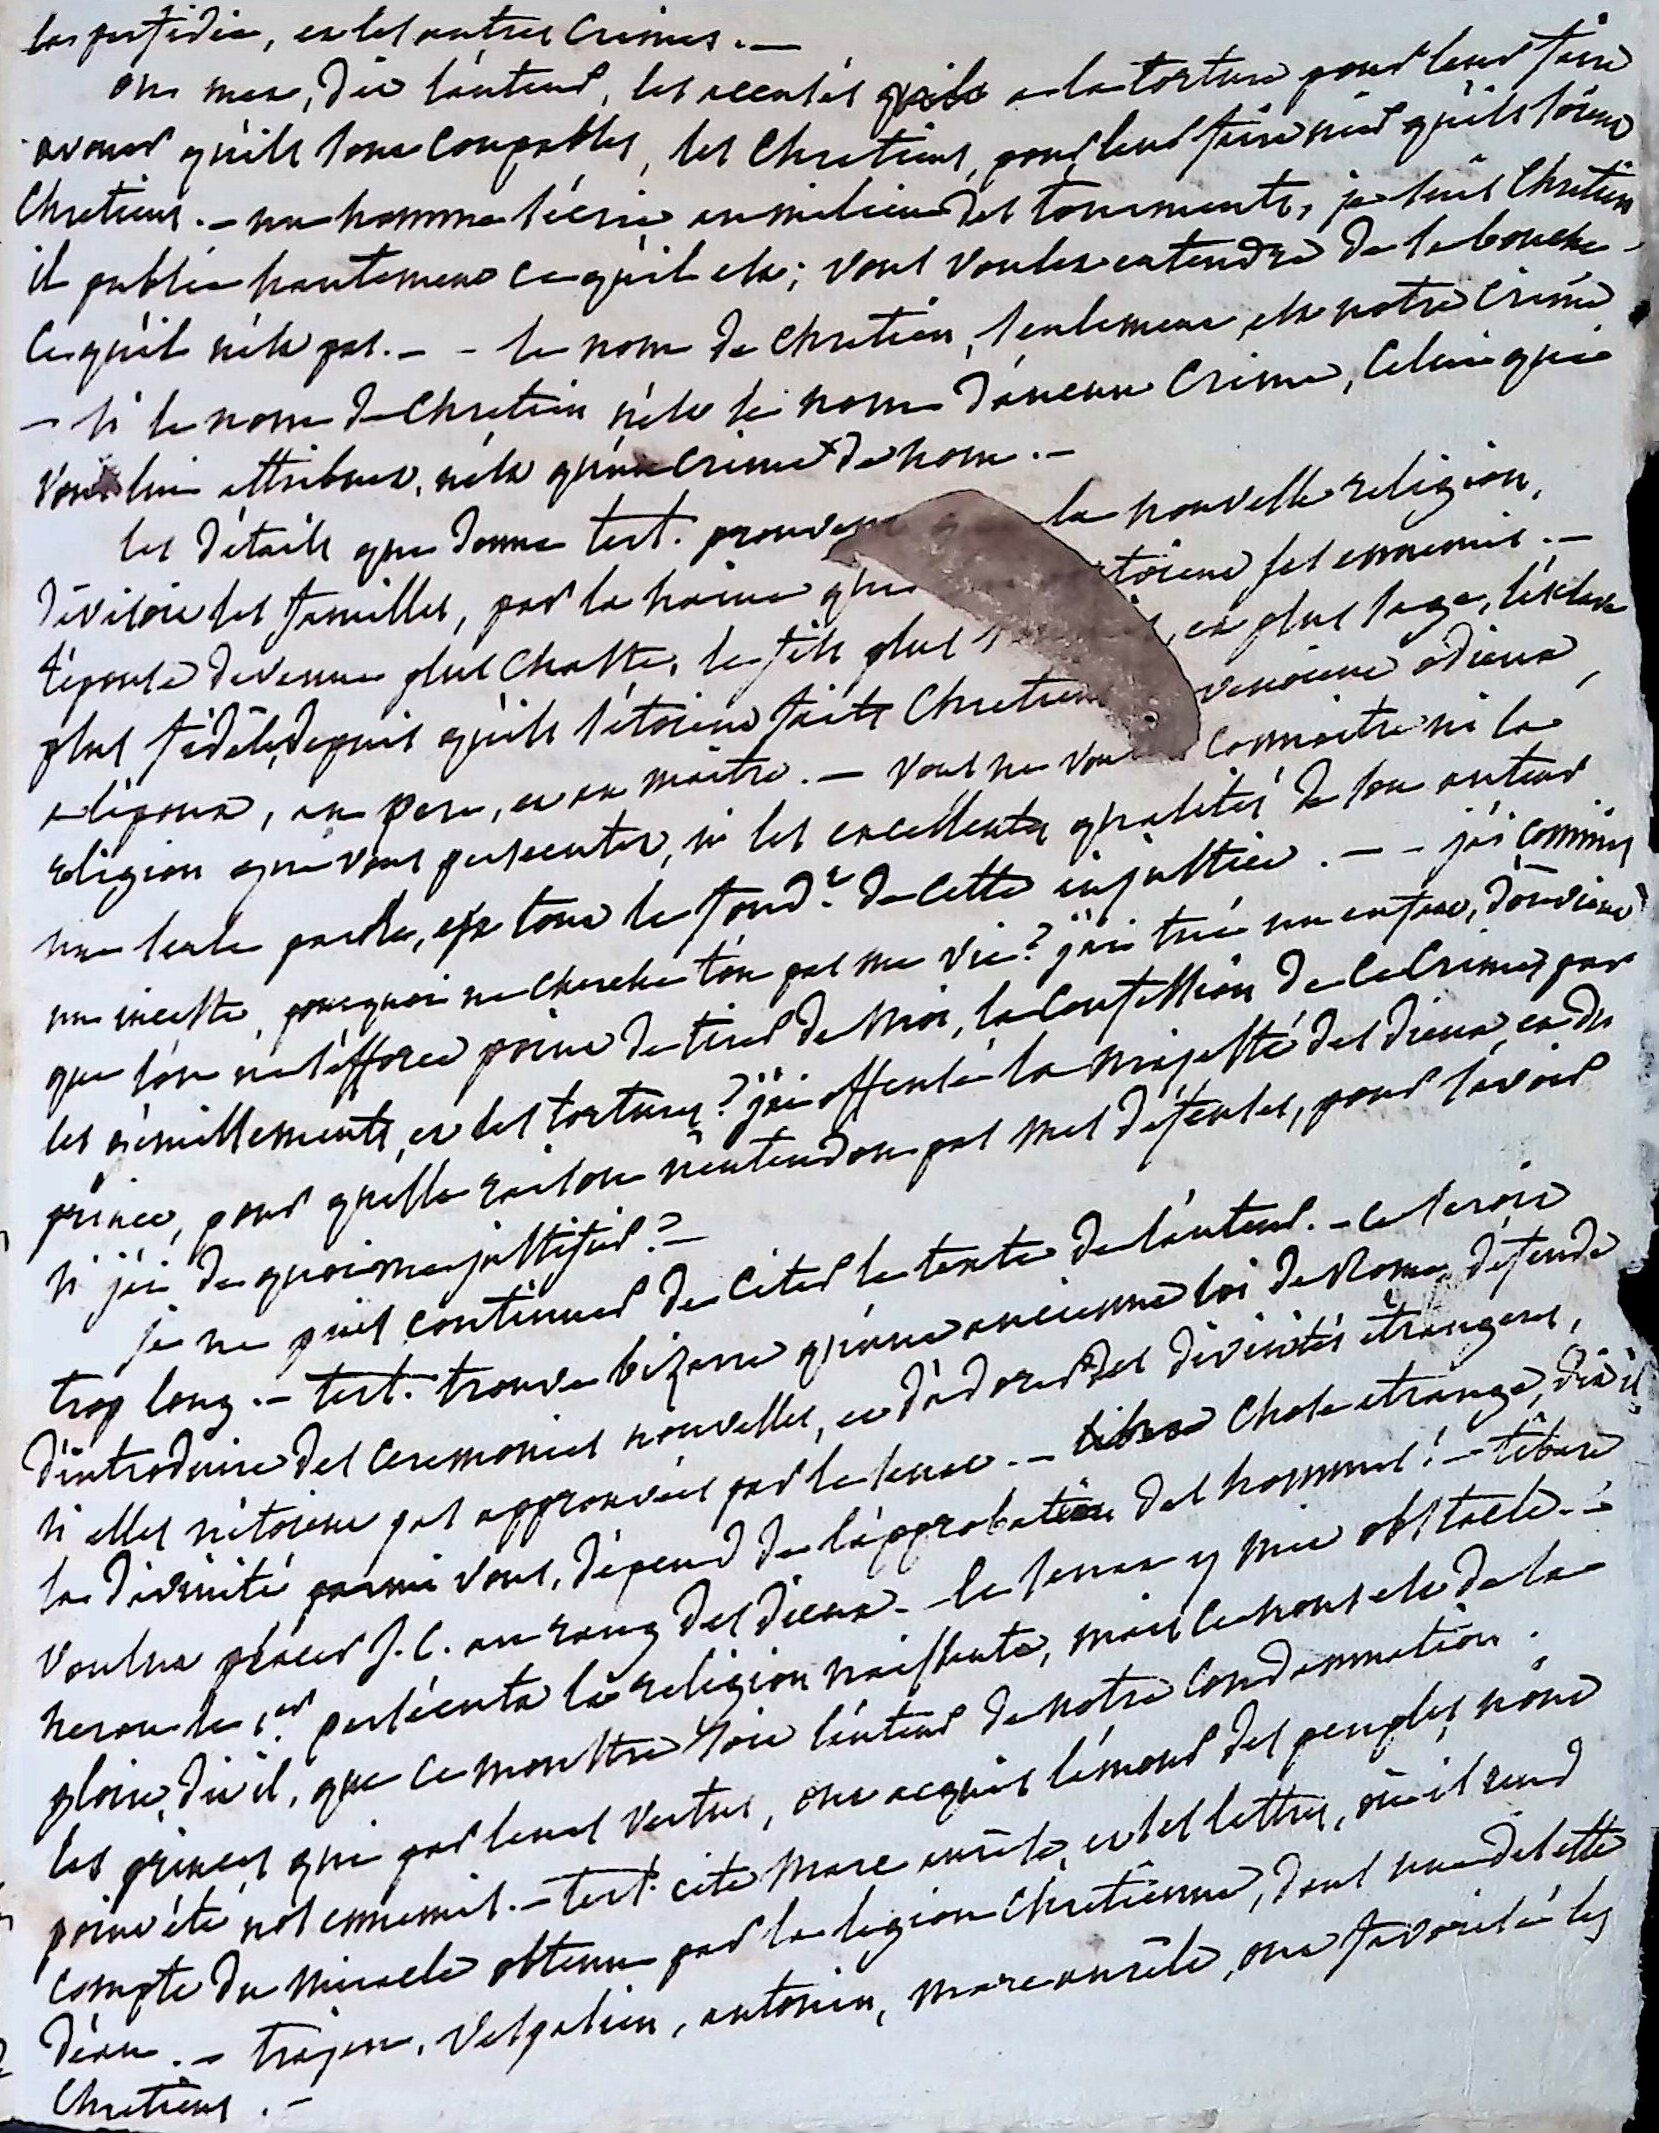 la perfidie, et les autres Crimes. —
on met, dit l'auteur, les accusés a la torture pour leur faire
avouer qu'ils sont Coupables, les Chretiens, pour leur faire nier qu'ils soient
Chretiens. — un homme s'écrie au milieu des tourments, je suis Chretien
il publie hautement ce qu'il est; vous voulez entendre de sa bouche
Ce qu'il n'est pas. — – le nom de chretien, seulement, est notre Crime
– si le nom de Chretien n'est le nom d'aucun Crime, Celui que
vous lui attribuez, n'est qu'un Crime de nom. —
les détails que donne tert. prouvent la nouvelle religion,
divisoit les familles, par la haine que toient ses ennemis. —
l'épouse devenue plus Chaste, le fils plus et plus sage, l'esclave
plus fidèle, depuis qu'ils s'étoient faits Chretiens venoient odieux
a l'époux, au pere, et au maitre. — vous ne voulez Connoitre ni la
religion que vous persecutez, ni les excellentes qualités de son auteur
une seule parole, est tout le fond.t de cette injustice. — – j'ai commis
un inceste, pourquoi ne cherche t'on pas ma vie? j'ai tué un enfant, d'ou vient
que l'on ne s'éfforce point de tirer de Moi, la Confession de Ce Crime, par
les et les tortures? j'ai offensé la Majesté des dieux, et du
prince, pour quelle raison n'entend on pas mes défenses, pour savoir
si j'ai de quoi me justifier? —
je ne puis continuer de Citer le texte de l'auteur. – ce seroit
trop long. – tert. trouve bizarre qu'une ancienne loi de Rome, défende
d'introduire des Ceremonies nouvelles, et d'adorer des divinités étrangeres,
si elles n'étoient pas approuvées par le senat. — Chose etrange, dit il
la divinité parmi vous, dépend de l'approbation des hommes! – tibere
voulut placer J. C. au rang des dieux – le senat y mit obstacle. –
neron le 1.er persécuta la religion naissante, mais Ce nous est de la
gloire, dit il, que ce monstre soit l'auteur de notre Condamnation.
les princes qui par leurs vertus, ont acquis l'amour des peuples, n'ont
point été nos ennemis. – tert. cite Marc aurele, et ses lettres, où il rend
compte du Miracle obtenu par la legion Chretienne, dans une disette
d'eau. – trajan, Vespasien, antonin, Marc aurele, ont favorisé les
Chretiens. –